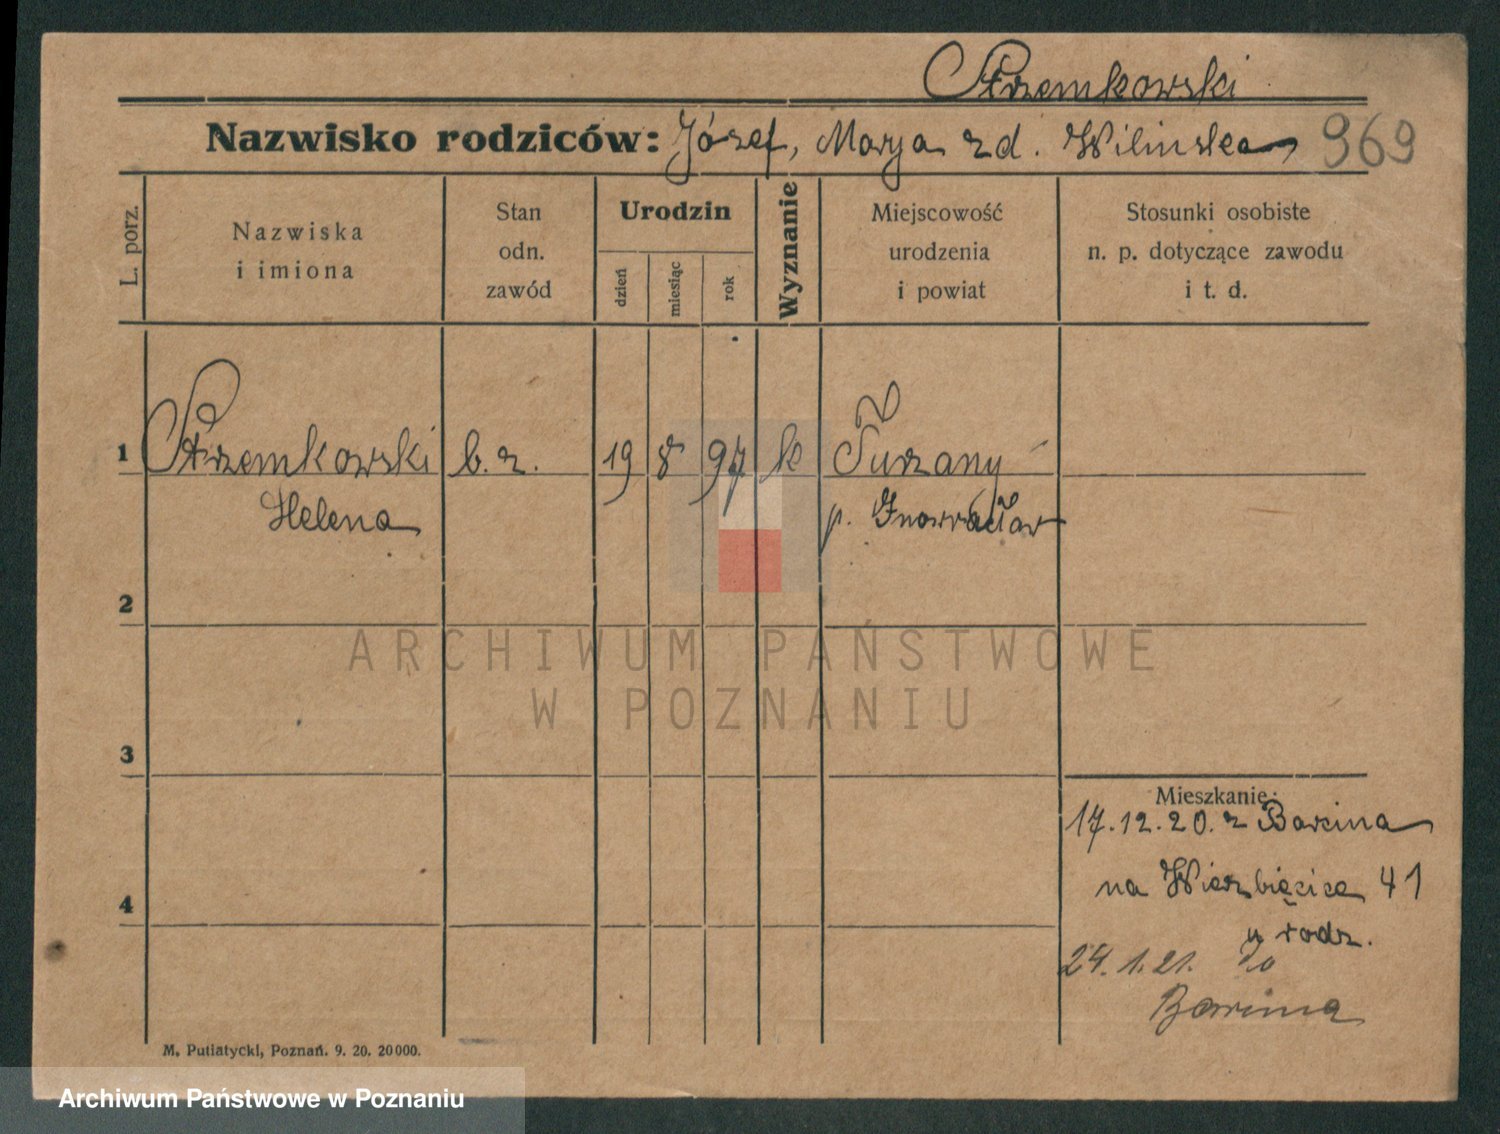 Strzemkowski
Nazwisko rodziców: Józef, Marya z d. Wilinska 969
L. porz.
Nazwiska
i imiona
Stan
odn.
zawód
Urodzin
dzień
miesiąc
rok
Wyznanie
Miejscowość
urodzenia
i powiat
Stosunki osobiste
n. p. dotyczące zawodu
i t. d.
1 Strzemkowski b. z. 19 8 97 k Turzany
Helena p. Inowracław
2
ARCHIWUM PAŃSTWOWE
W POZNANIU
3
Mieszkanie:
17.12.20. z Barcina
4 na Wierzbięcice 41
u rodz.
24.1.21. do
Barcina
M. Putiatycki, Poznań. 9. 20. 20000.
Archiwum Państwowe w Poznaniu